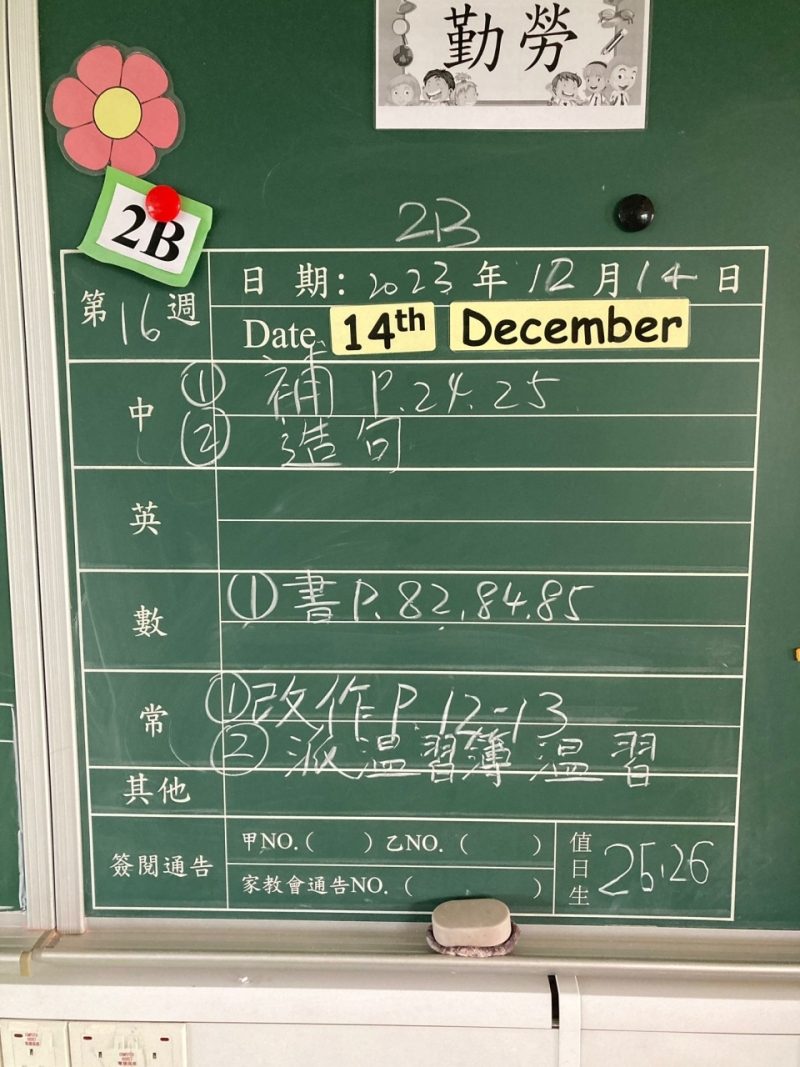 勤勞
2B
2B
第16週
日期：2023年12月14日
Date 14th December
中
① 補 P.24.25
② 造句
英
數
① 書P.82.84.85
常
① 改作P.12-13
② 派溫習簿溫習
其他
簽閱通告
甲NO.( ) 乙NO. ( )
家教會通告NO. ( )
值日生 25.26